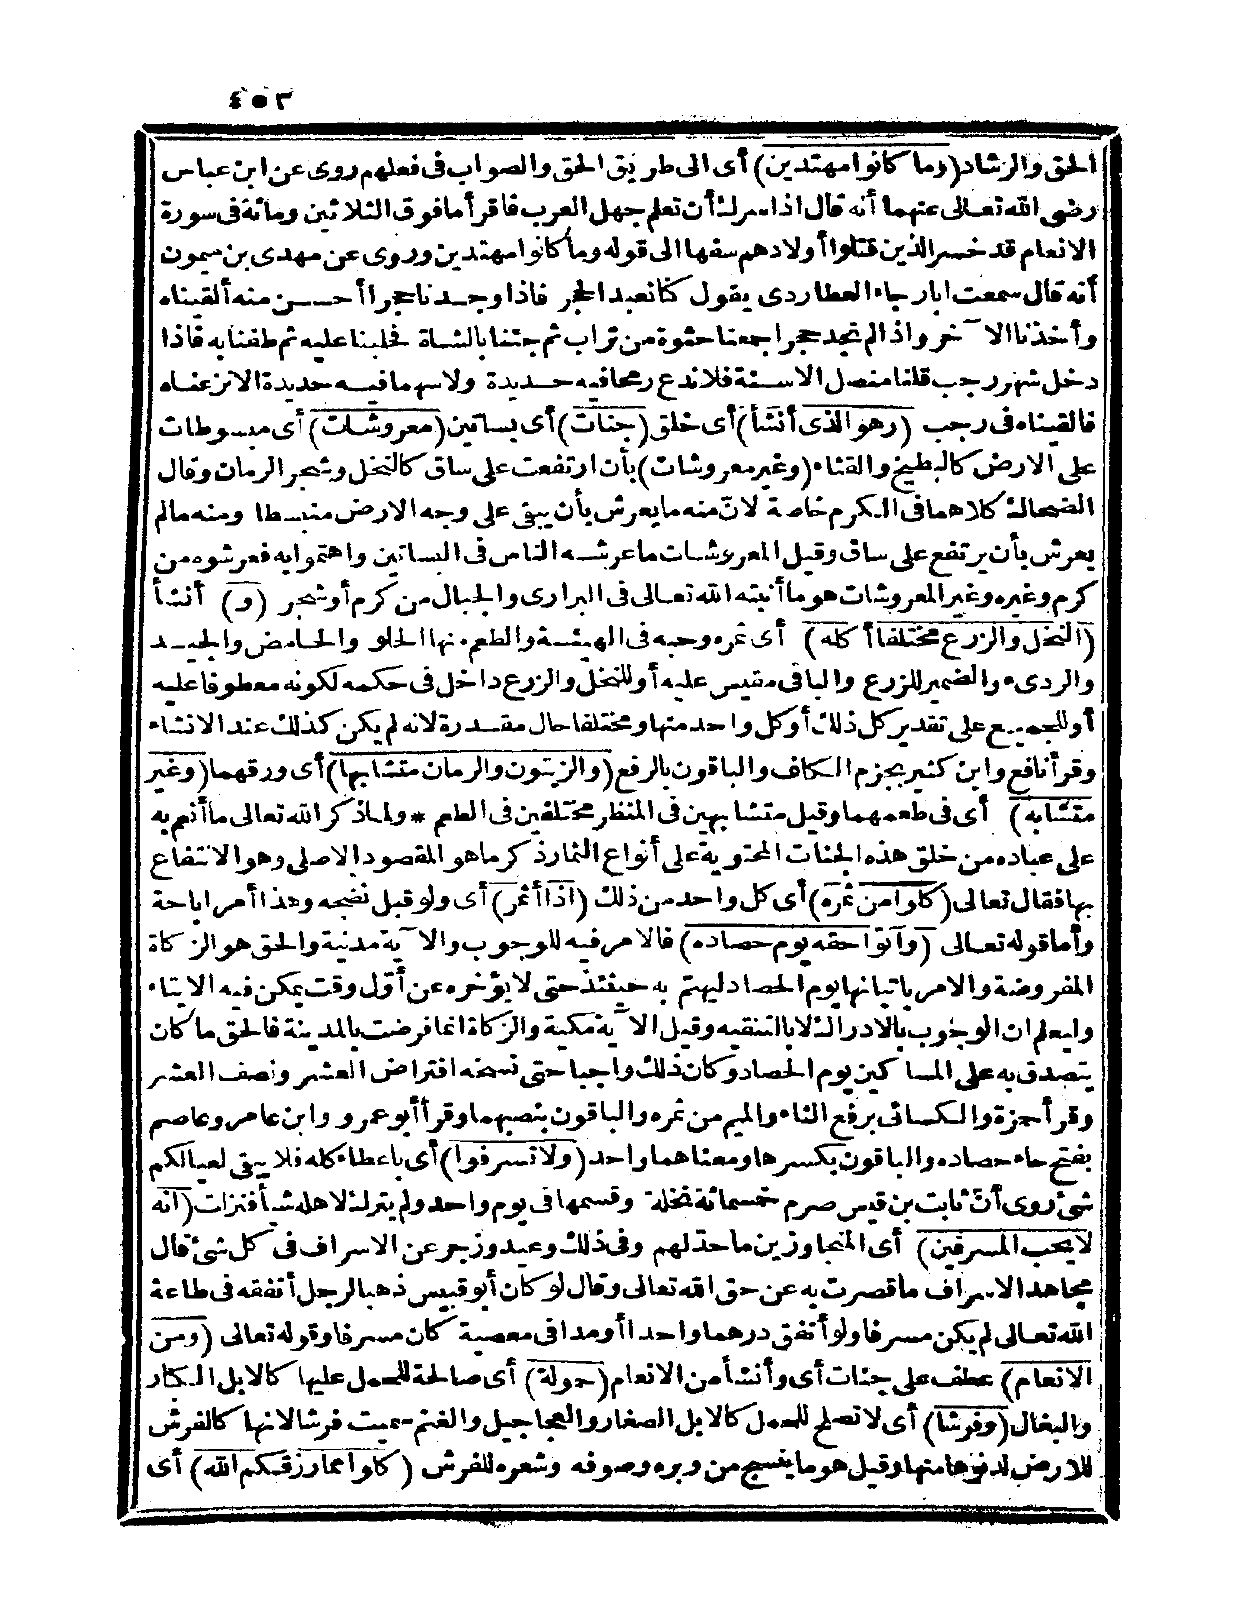 ٤٥٣
الحق والرشاد (وما كانوا مهتدين) أى الى طريق الحق والصواب فى فعلهم روى عن ابن عباس
رضى الله تعالى عنهما أنه قال اذا سرك أن تعلم جهل العرب فاقرأ ما فوق الثلاثين ومائة فى سورة
الانعام قد خسر الذين قتلوا أولادهم سفها الى قوله وما كانوا مهتدين وروى عن مهدى بن ميمون
أنه قال سمعت ابا رجاء العطاردى يقول كنا نعبد الحجر فاذا وجدنا حجرا أحسن منه ألقيناه
وأخذنا الآخر واذا لم نجد حجرا جمعنا حثوة من تراب ثم جئنا بالشاة فحلبنا عليه ثم طفنا به فاذا
دخل شهر رجب قلنا منصل الاسنة فلا ندع رمحا فيه حديدة ولا سهما فيه حديدة الا نزعناه
فألقيناه فى رجب (وهو الذى أنشأ) أى خلق (جنات) أى بساتين (معروشات) أى مبسوطات
على الارض كالبطيخ والقثاء (وغير معروشات) بأن ارتفعت على ساق كالنخل وشجر الرمان وقال
الضحاك كلاهما فى الكرم خاصة لانّ منه ما يعرش بأن يبقى على وجه الارض منبسطا ومنه مالم
يعرش بأن يرتفع على ساق وقيل المعروشات ما عرشه الناس فى البساتين واهتموا به فعرشوه من
كرم وغيره وغير المعروشات هو ما أنبته الله تعالى فى البرارى والجبال من كرم أو شجر (و) أنشأ
(النخل والزرع مختلفا أكله) أى ثمره وحبه فى الهيئة والطعم منها الحلو والحامض والجيد
والردىء والضمير للزرع والباقى مقيس عليه أو للنخل والزرع داخل فى حكمه لكونه معطوفا عليه
أو للجميع على تقدير كل ذلك أو كل واحد منها ومختلفا حال مقدرة لانه لم يكن كذلك عند الانشاء
وقرأ نافع وابن كثير بجزم الكاف والباقون بالرفع (والزيتون والرمان متشابها) أى ورقهما (وغير
متشابه) أى فى طعمهما وقيل متشابهين فى المنظر مختلفين فى الطعم * ولما ذكر الله تعالى ما أنعم به
على عباده من خلق هذه الجنات المحتوية على أنواع الثمار ذكر ما هو المقصود الاصلى وهو الانتفاع
بها فقال تعالى (كلوا من ثمره) أى كل واحد من ذلك (اذا أثمر) أى ولو قبل نضجه وهذا أمر اباحة
وأما قوله تعالى (وآتوا حقه يوم حصاده) فالامر فيه للوجوب والآية مدنية والحق هو الزكاة
المفروضة والامر باتيانها يوم الحصاد ليهتم به حينئذ حتى لا يؤخره عن أوّل وقت يمكن فيه الايتاء
وليعلم ان الوجوب بالادراك لا بالتنقيه وقيل الآية مكية والزكاة انما فرضت بالمدينة فالحق ما كان
يتصدق به على المساكين يوم الحصاد وكان ذلك واجبا حتى نسخه افتراض العشر ونصف العشر
وقرأ حمزة والكسائى برفع الثاء والميم من ثمره والباقون بنصبهما وقرأ أبو عمرو وابن عامر وعاصم
بفتح حاء حصاده والباقون بكسرها ومعناهما واحد (ولا تسرفوا) أى باعطاء كله فلا يبقى لعيالكم
شئ روى أنّ ثابت بن قيس صرم خمسمائة نخلة وقسمها فى يوم واحد ولم يترك لاهله شيأ فنزلت (انه
لا يحب المسرفين) أى المتجاوزين ما حد لهم وفى ذلك وعيد وزجر عن الاسراف فى كل شئ قال
مجاهد الاسراف ما قصرت به عن حق الله تعالى وقال لو كان أبو قبيس ذهبا لرجل أنفقه فى طاعة
الله تعالى لم يكن مسرفا ولو أنفق درهما واحدا أو مدا فى معصية كان مسرفا وقوله تعالى (ومن
الانعام) عطف على جنات أى وأنشأ من الانعام (حمولة) أى صالحة للحمل عليها كالابل الكبار
والبغال (وفرشا) أى لا تصلح للحمل كالابل الصغار والعجاجيل والغنم سميت فرشا لانها كالفرش
للارض لدنوّها منها وقيل هو ما ينسج من وبره وصوفه وشعره للفرش (كلوا مما رزقكم الله) أى